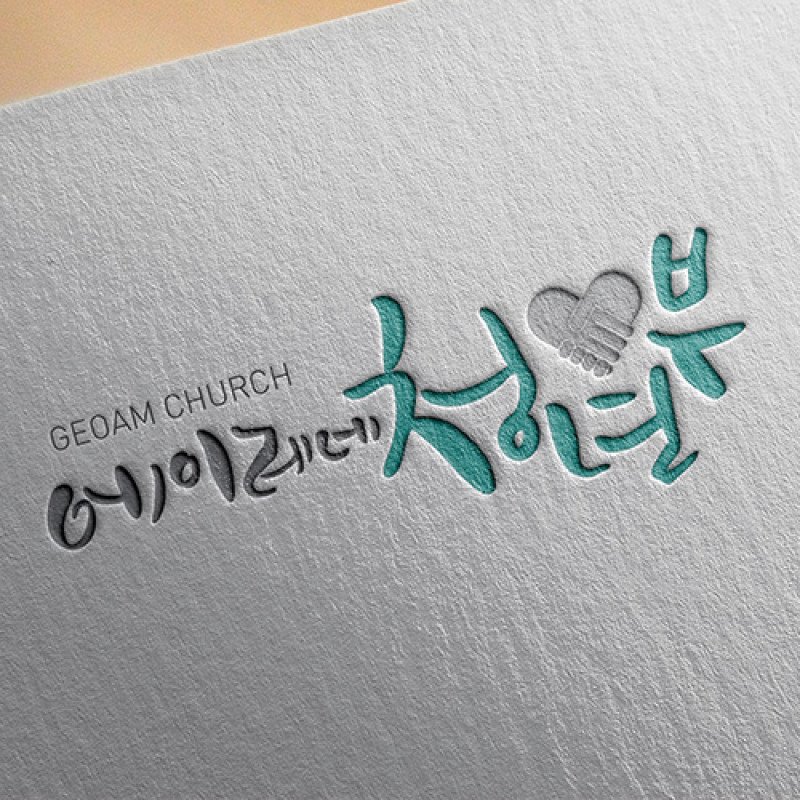 GEOAM CHURCH
에이레네 청년부